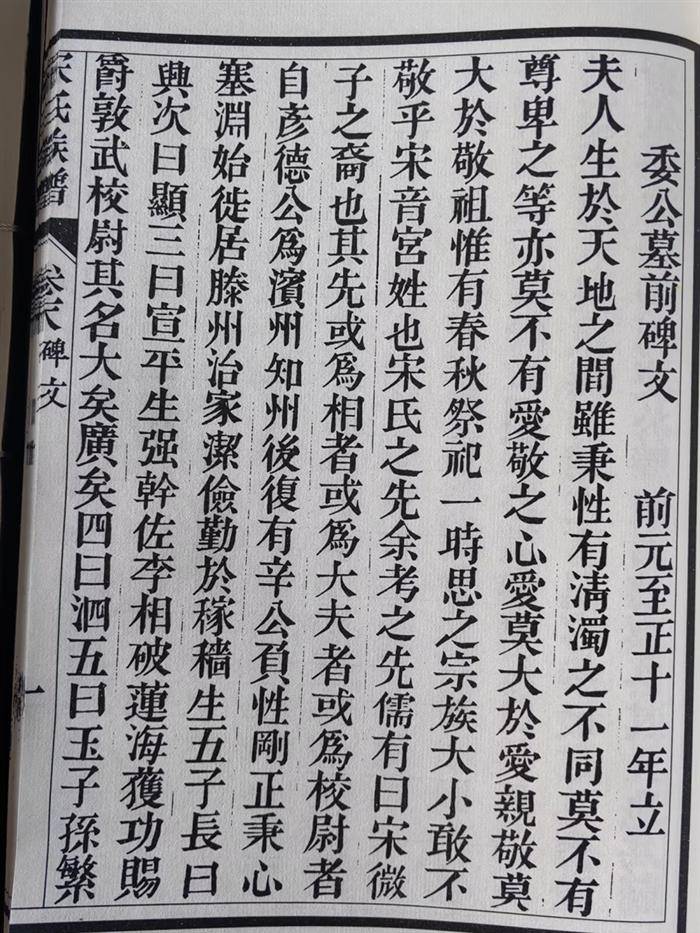 委公墓前碑文 前元至正十一年立
夫人生於天地之間雖秉性有淸濁之不同莫不有
尊卑之等亦莫不有愛敬之心愛莫大於愛親敬莫
大於敬祖惟有春秋祭祀一時思之宗族大小敢不
敬乎宋音宮姓也宋氏之先余考之先儒有曰宋微
子之裔也其先或爲相者或爲大夫者或爲校尉者
自彥德公爲濱州知州後復有辛公負性剛正秉心
塞淵始徙居滕州治家潔儉勤於稼穡生五子長曰
興次曰顯三曰宣平生强幹佐李相破蓮海獲功賜
爵敦武校尉其名大矣廣矣四曰泗五曰玉子孫繁
宋氏族譜 卷 碑文 一